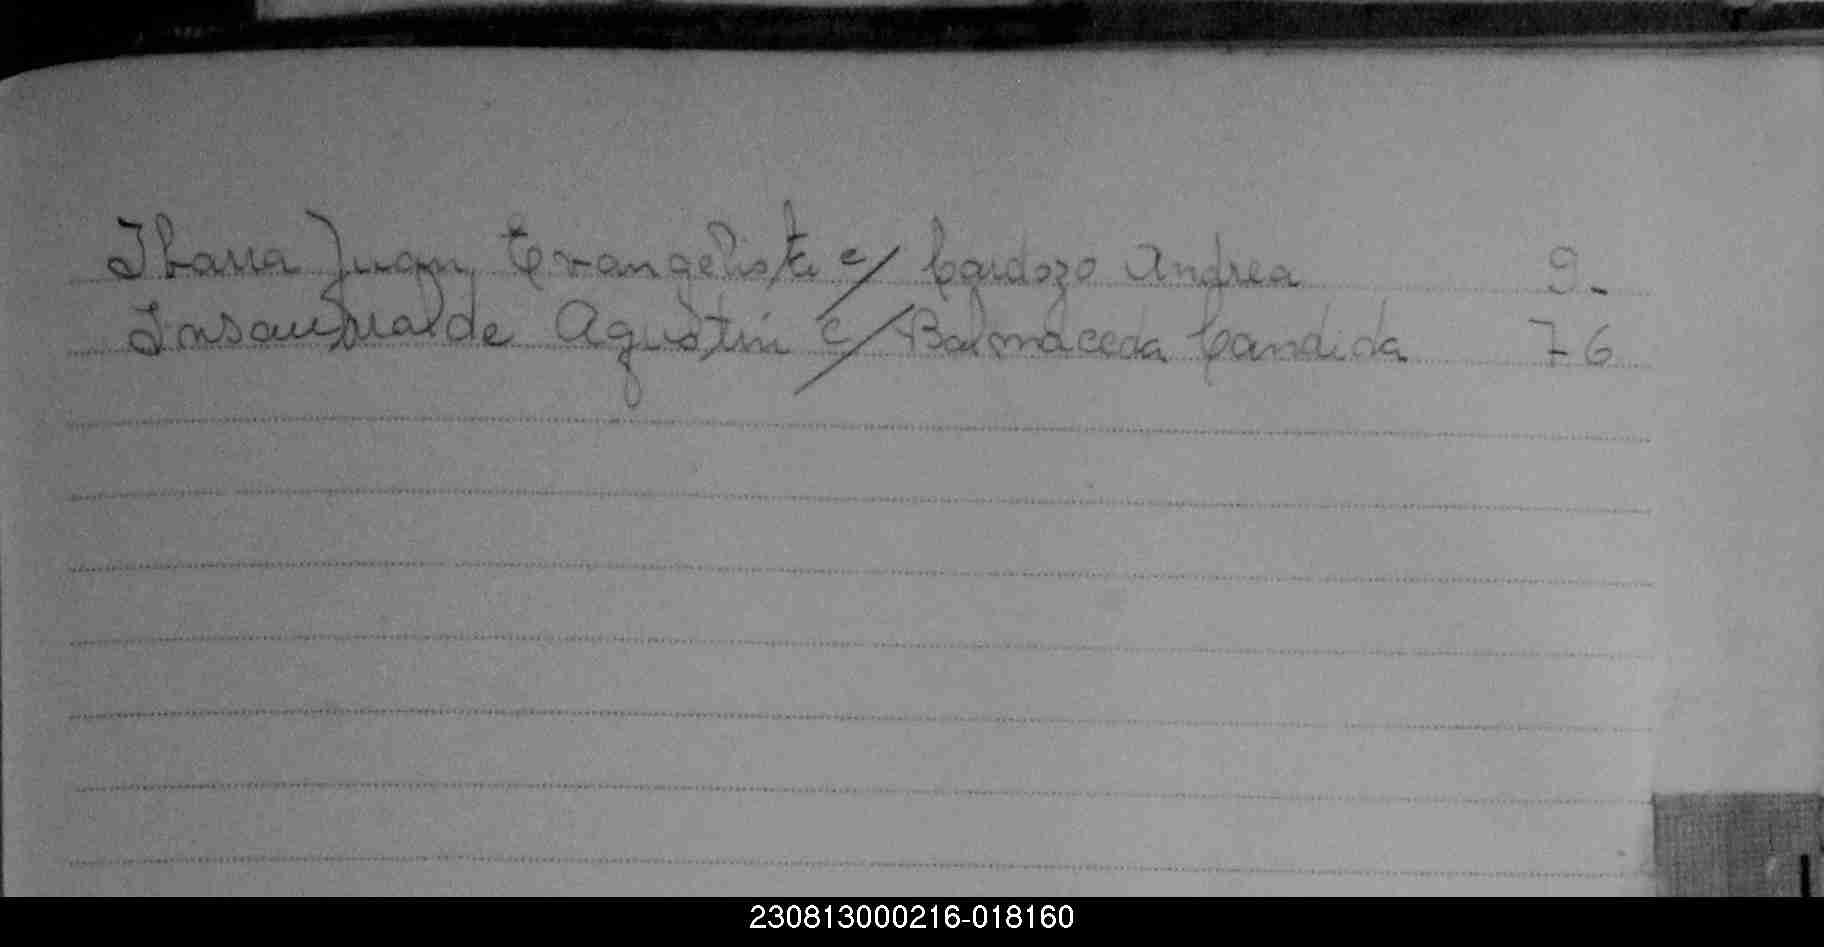 Ibarra Juan Evangelista c/ Cardozo Andrea 9.
Insaurralde Agustin c/ Balmaceda Candida 76
230813000216-018160